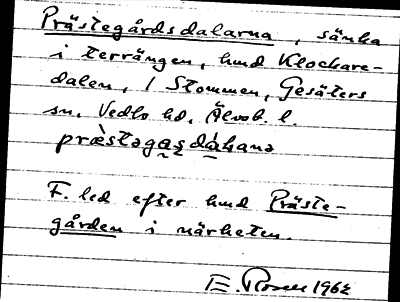 Prästegårdsdalarna, sänka
i terrängen, hmd Klockare-
dalen, 1 Stommen, Gesäters
sn, Vedbo hd, Älvsb. l.
F. led efter hmd Präste-
gården i närheten.
1962